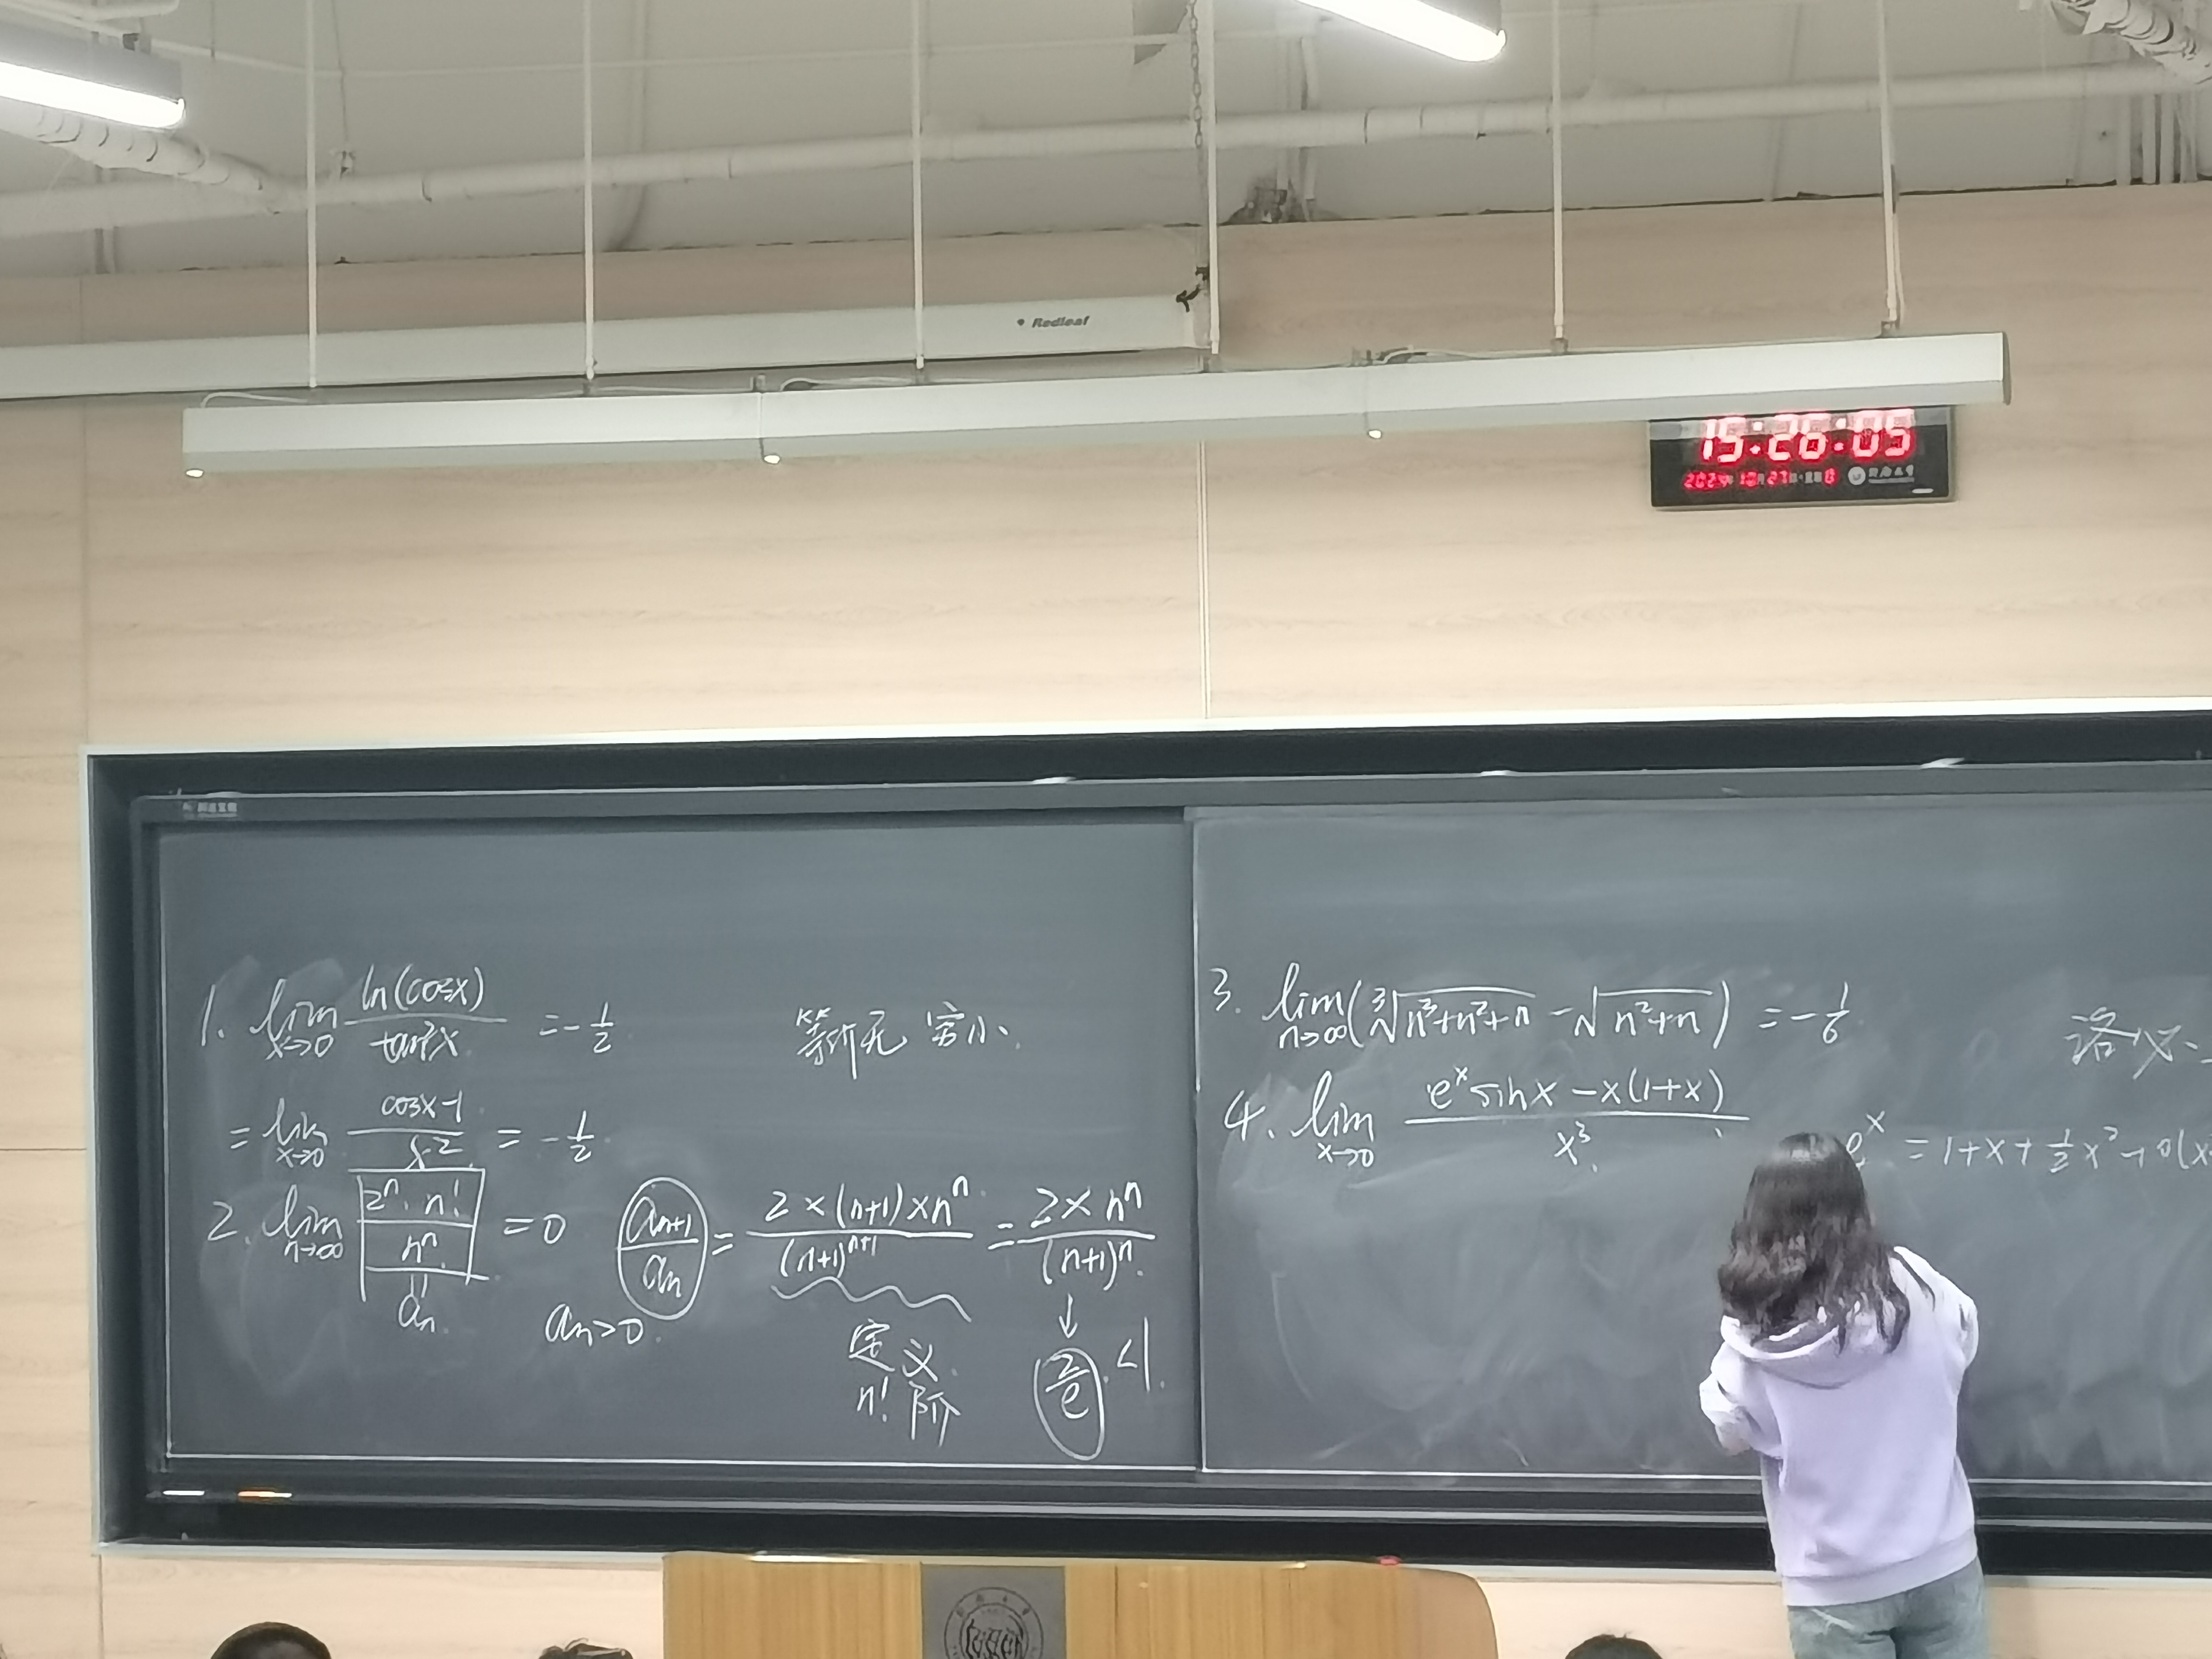 Redleaf
15:26:05
1. lim x→0 ln(cosx)/tan²x = -1/2
等价无穷小.
= lim x→0 cosx-1/x² = -1/2
2. lim n→∞ 2ⁿ·n!/nⁿ = 0
aₙ
aₙ>0.
aₙ₊₁/aₙ = 2×(n+1)×nⁿ/(n+1)ⁿ⁺¹ = 2×nⁿ/(n+1)ⁿ
↓
2/e <1.
定义
n! 阶
3. lim n→∞ (∛(n³+n²+n) - √(n²+n)) = -1/6
洛必
4. lim x→0 eˣsinx - x(1+x)/x³
eˣ = 1+x+1/2x²+o(x